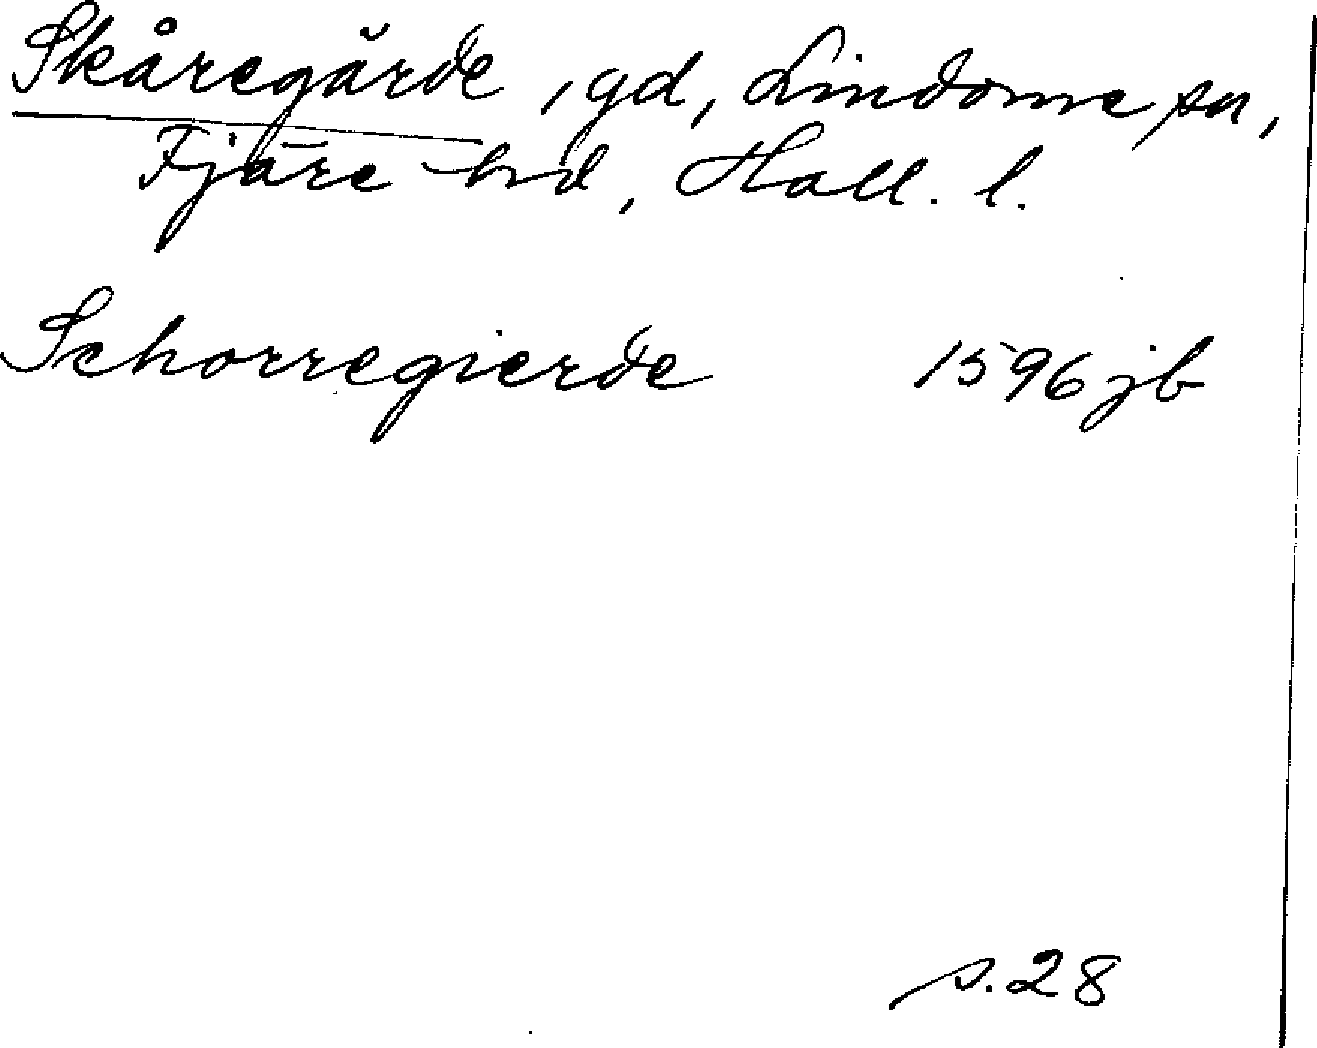 Skåregärde, gd, Lindome sn,
Fjäre hd, Hall. l.
Schorregierde 1596 jb
s. 28